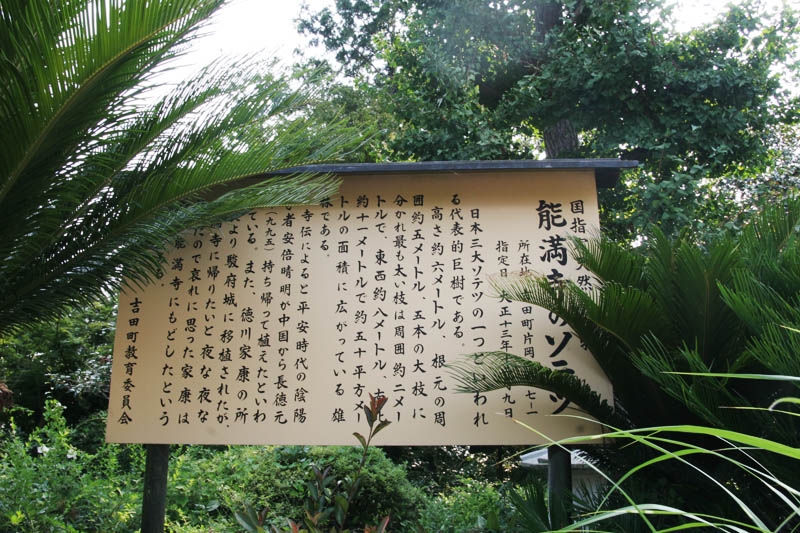 国指 天然
能満寺のソテツ
所在地 田町片岡 七-一
指定日 正十三年 九日
日本三大ソテツの一つと われ
る代表的巨樹である。
高さ約六メートル、根元の周
囲約五メートル、五本の大枝に
分かれ最も太い枝は周囲約二メー
トルで、東西約八メートル、
約十一メートルで約五十平方メー
トルの面積に広がっている雄
株である。
寺伝によると平安時代の陰陽
者安倍晴明が中国から長徳元
(九九五)持ち帰って植えたといわ
ている。また、徳川家康の所
より駿府城に移植されたが、
満寺に帰りたいと夜な夜な
たので哀れに思った家康は
能満寺にもどしたという
る。
吉田町教育委員会